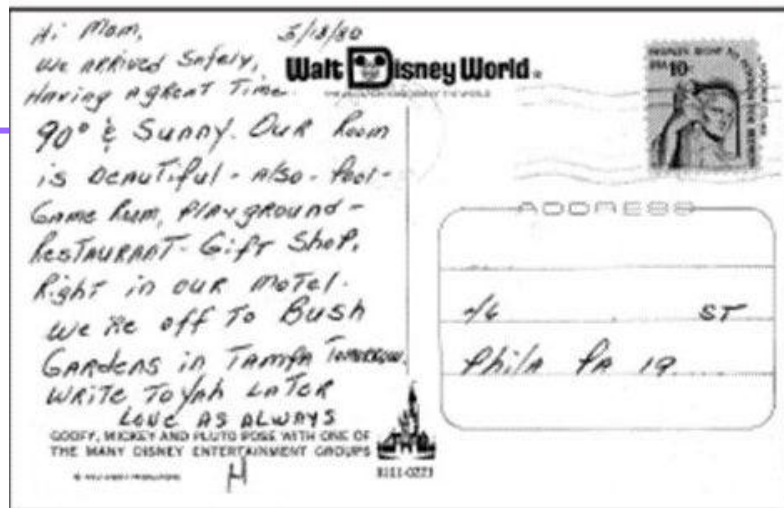 Hi Mom, 5/18/80
We ARRived Safely,
Having A gReat Time.
90° & Sunny. Our Room
is Beautiful - Also - Pool -
Game Rum, Playground -
Restaurant - Gift Shop.
Right in our motel.
We're off To Bush
Gardens in Tampa Tomorrow.
Write To Yah Later
Love As Always
H
Walt Disney World
GOOFY, MICKEY AND PLUTO POSE WITH ONE OF
THE MANY DISNEY ENTERTAINMENT GROUPS
0111-0223
ADDRESS
ST
Phila PA 19